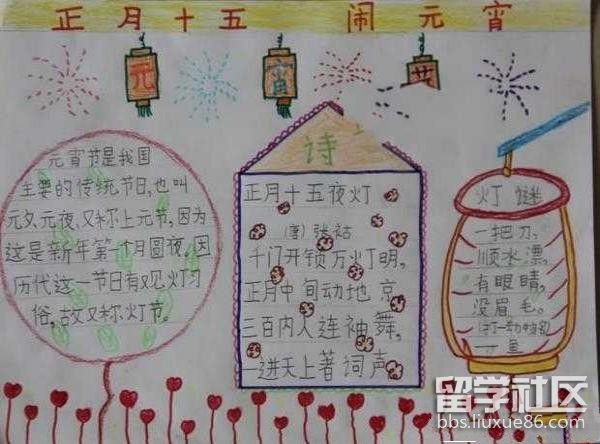 正月十五 闹元宵
元 宵
元宵节是我国
主要的传统节日,也叫
元夕、元夜、又称上元节,因为
这是新年第一个月圆夜。因
历代这一节日有观灯习
俗,故又称灯节。
诗
正月十五夜灯
(唐) 张祜
千门开锁万灯明,
正月中旬动地京
三百内人连袖舞,
一进天上著词声
灯谜
一把刀、
顺水漂,
有眼睛,
没眉毛。
(打一动物名)
鱼
留学社区
bbs.liuxue86.com